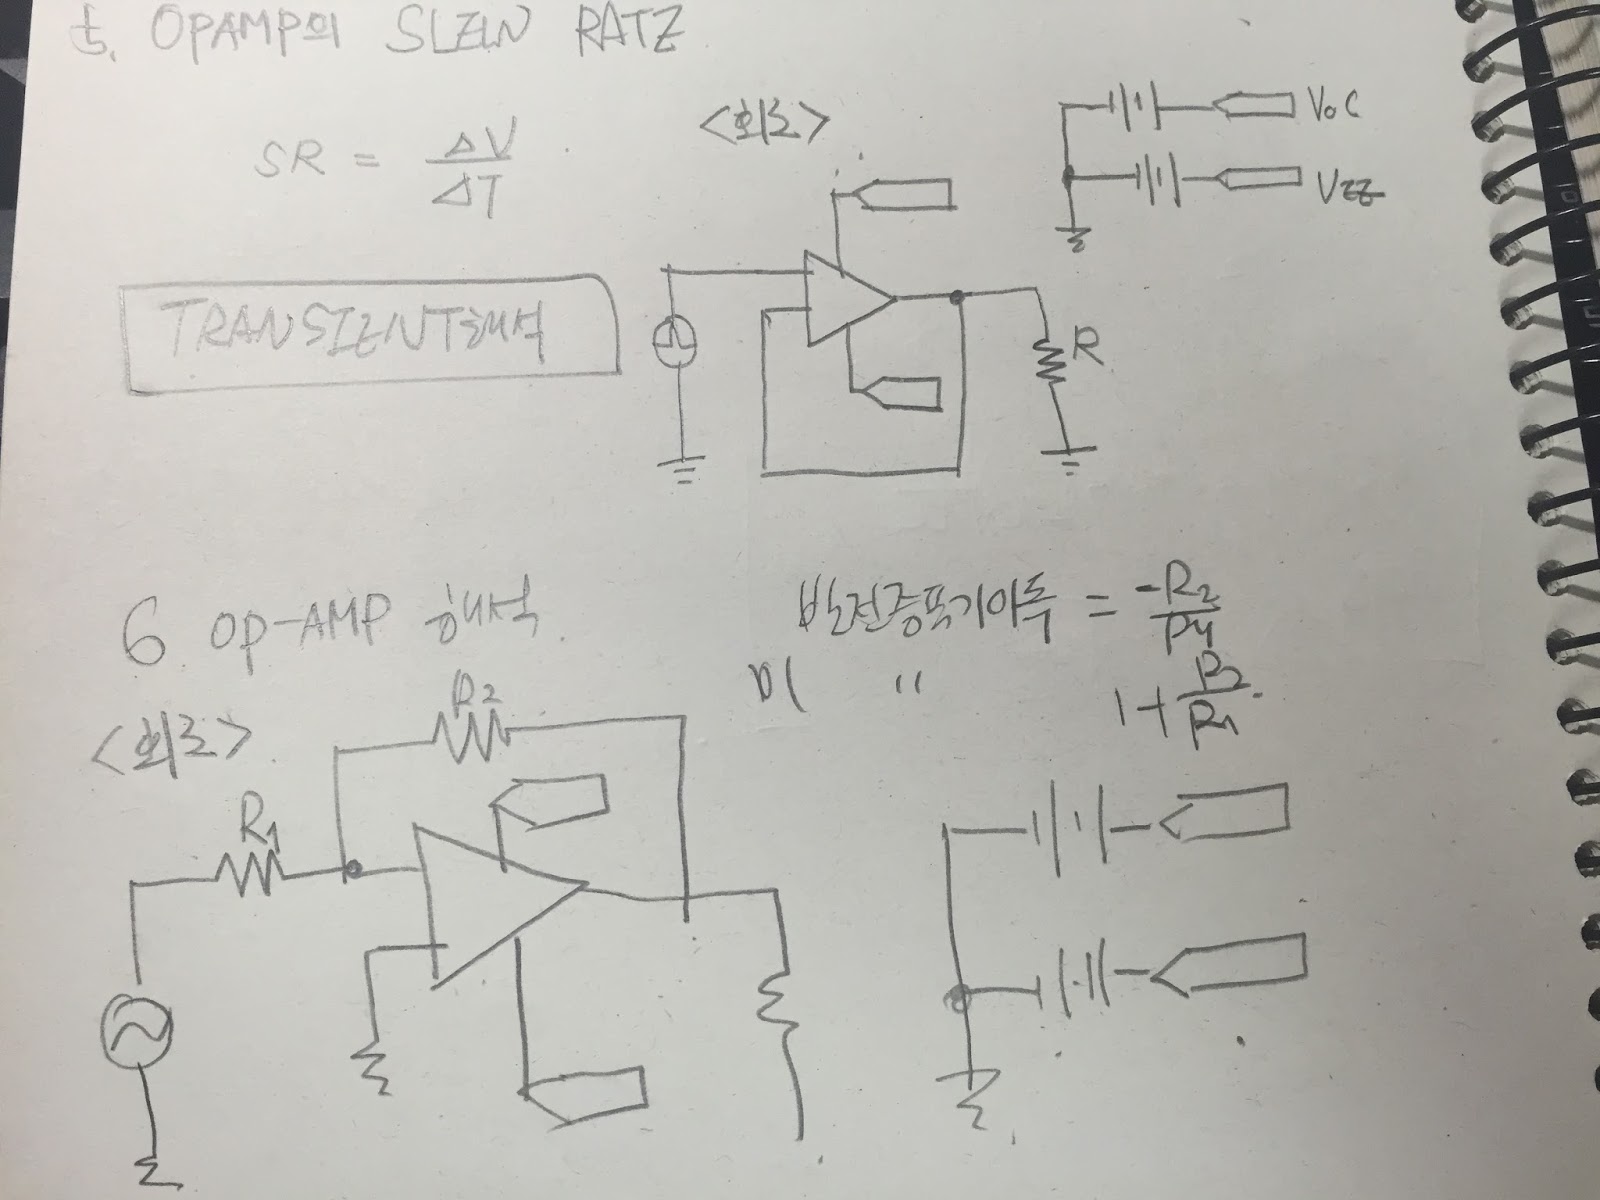 5. OPAMP의 SLEW RATE
SR = ΔV/ΔT
<회로>
VCC
VEE
TRANSIENT해석
R
6 OP-AMP 해석
반전증폭기이득 = -R2/R1
비 " 1+R2/R1
<회로>
R2
R1